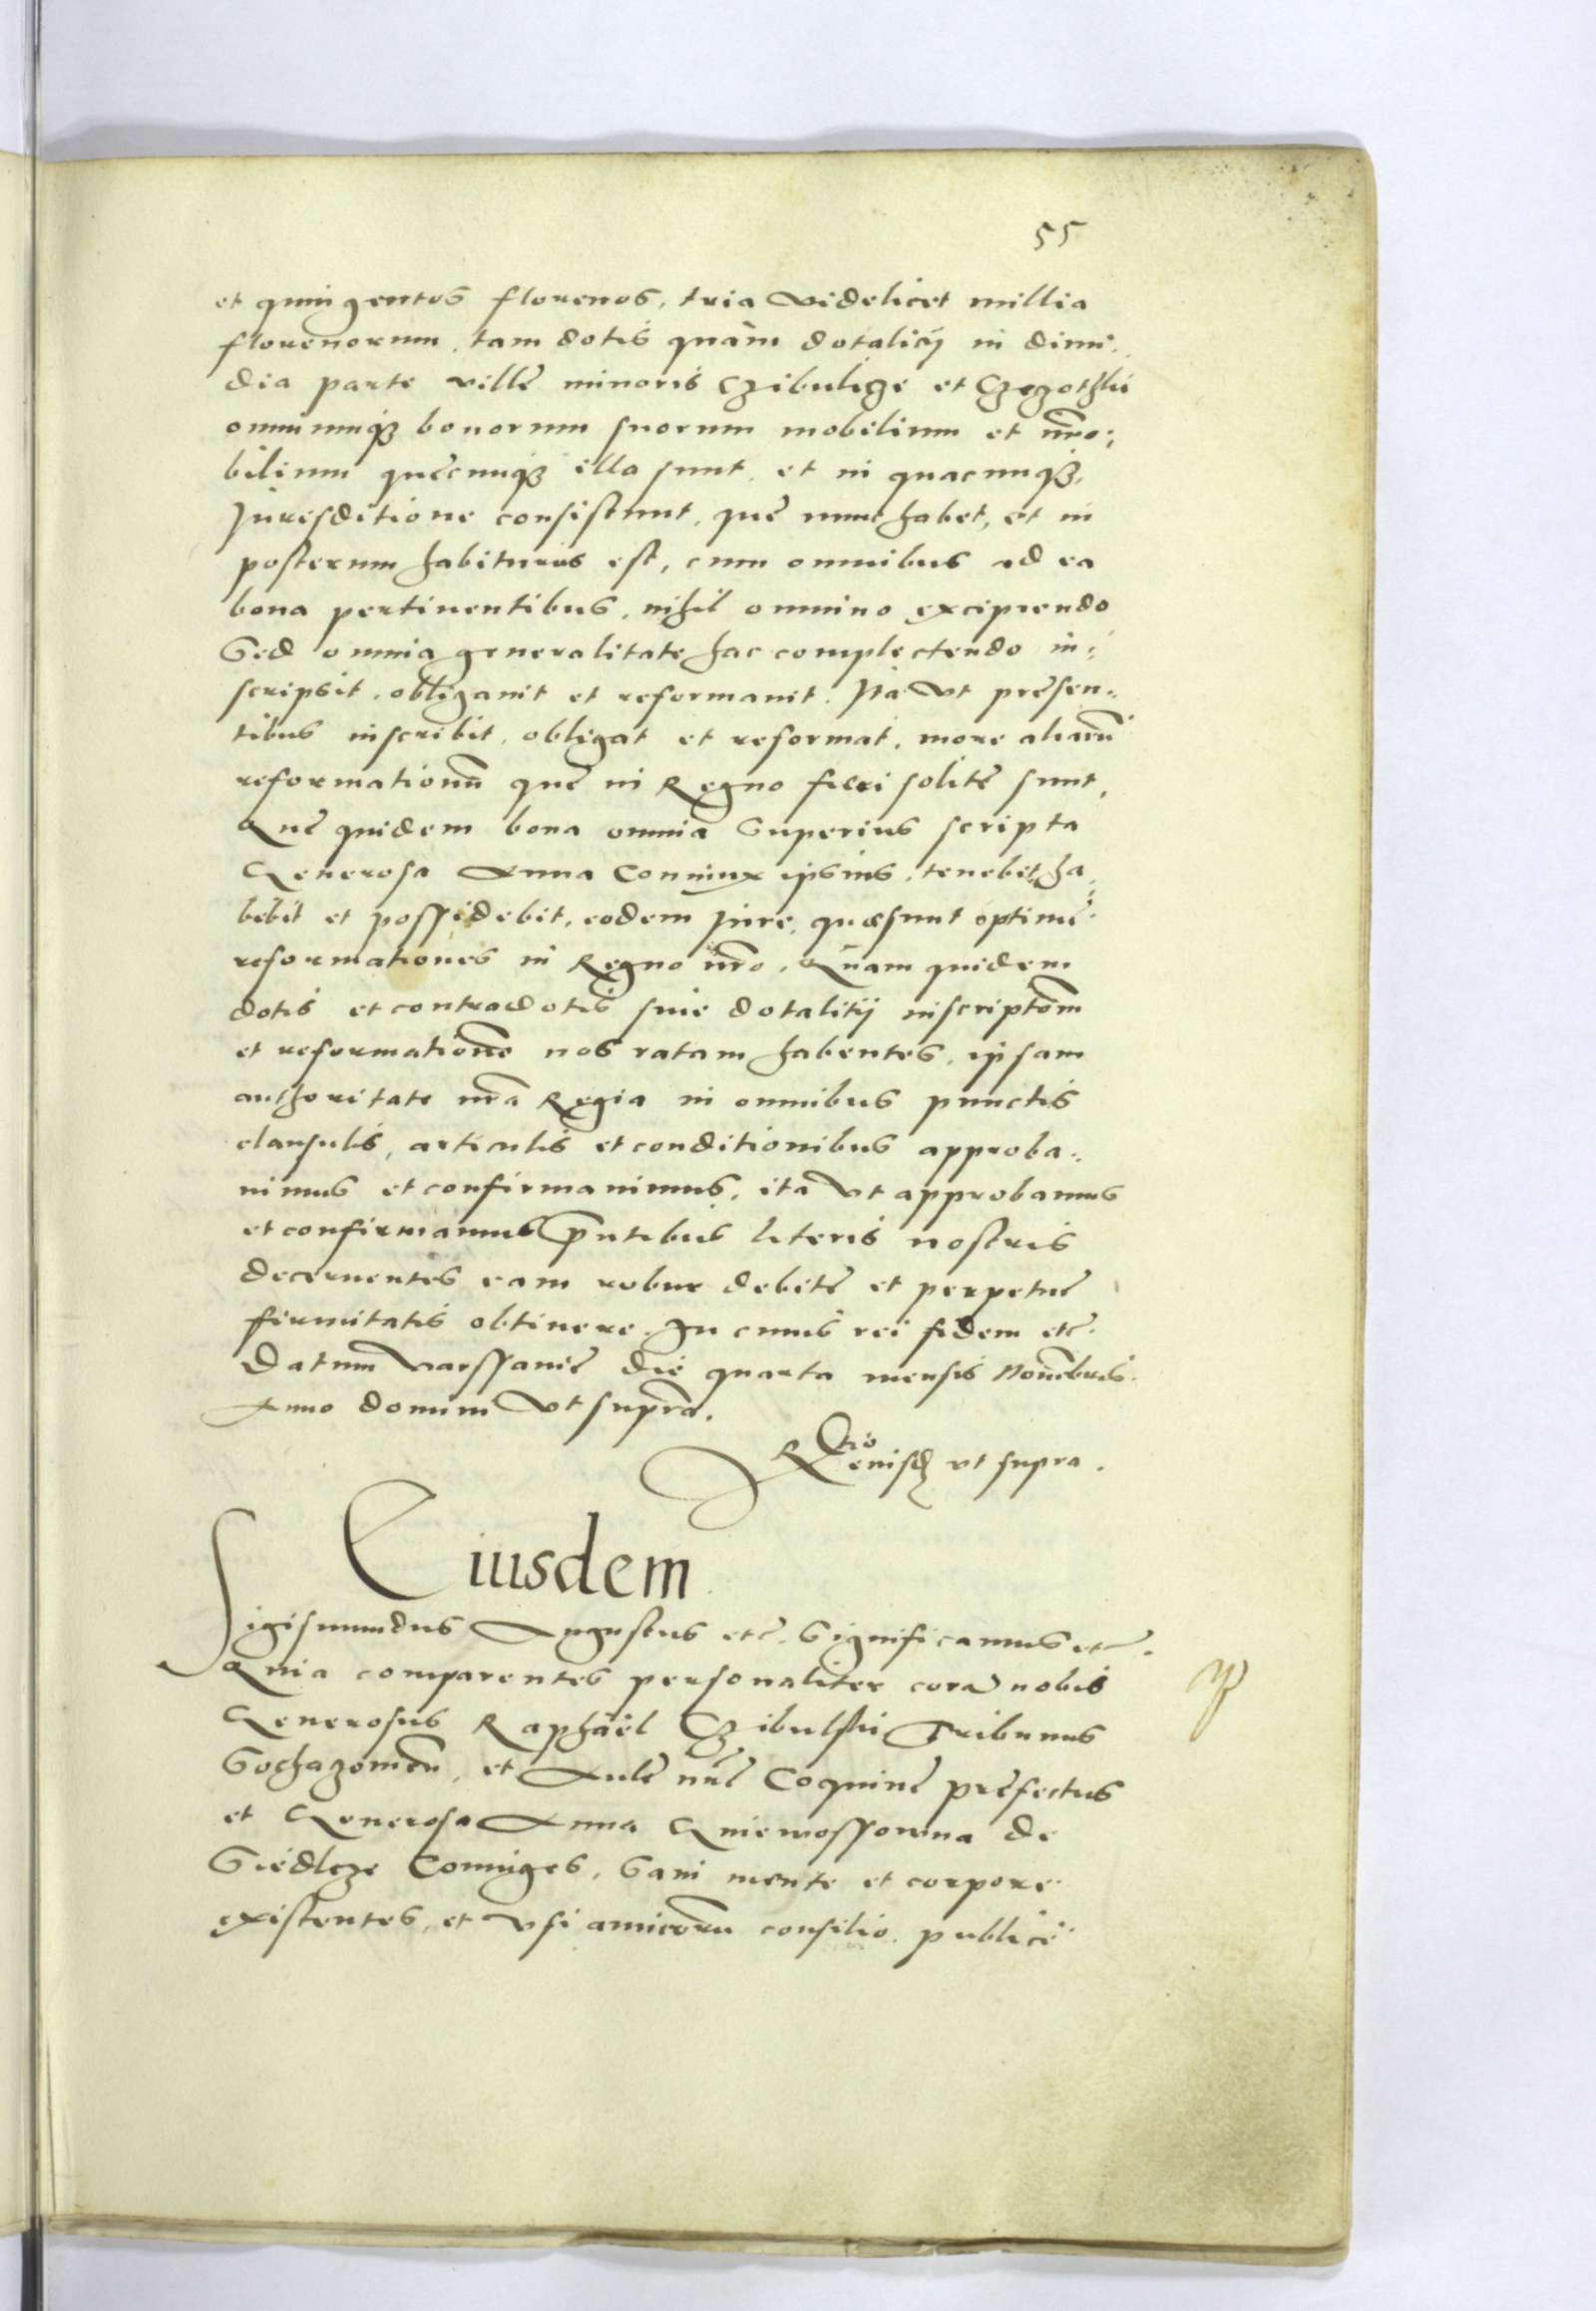 55
et quingentos florenos, tria videlicet millia
florenorum, tam dotis quàm dotalicij in dimi-
dia parte ville minoris Czibulige et
omniumq3 bonorum suorum mobilium et immo-
bilium quecunq3 illa sunt, et in quacunq3
Jurisditione consistunt, que nunc habet, et in
posterum habiturus est, cum omnibus ad ea
bona pertinentibus, nihil omnino excipiendo
Sed omnia generalitate hac complectendo in-
scripsit, obligauit et reformauit. Ita vt presen-
tibus inscribit, obligat et reformat, more aliarũ
reformationũ que in Regno fieri solite sunt,
Que quidem bona omnia superius scripta
Generosa Anna Coniunx ipsius, tenebit, ha-
bebit et possidebit, eodem Jure, quo sunt optime
reformationes in Regno nrõ. Quam quidem
dotis et contradotis siue dotalitij inscriptõm
et reformationẽ nos ratam habentes, ipsam
authoritate nrã Regia in omnibus punctis
clausulis, articulis et conditionibus approba-
uimus et confirmauimus, ita vt approbamus
et confirmamus pñtibus literis nostris
decernentes eam robur debite et perpetue
firmitatis obtinere. In cuius rei fidem etc.
Datum Varssauie die quarta mensis Nouẽbris.
Anno domini vt supra.
Rtio Reuisq vt supra.
Eiusdem
Sigismundus Augustus etc. Significamus etc.
Quia comparentes personaliter corã nobis
Generosus Raphaël Czibulski Tribunus
Sochazoweñ, et Aule nrẽ Coquine prefectus
et Generosa Anna Gniewossowna de
Siedlcze Coniuges, Sani mente et corpore
existentes, et vsi amicorũ consilio, publicè